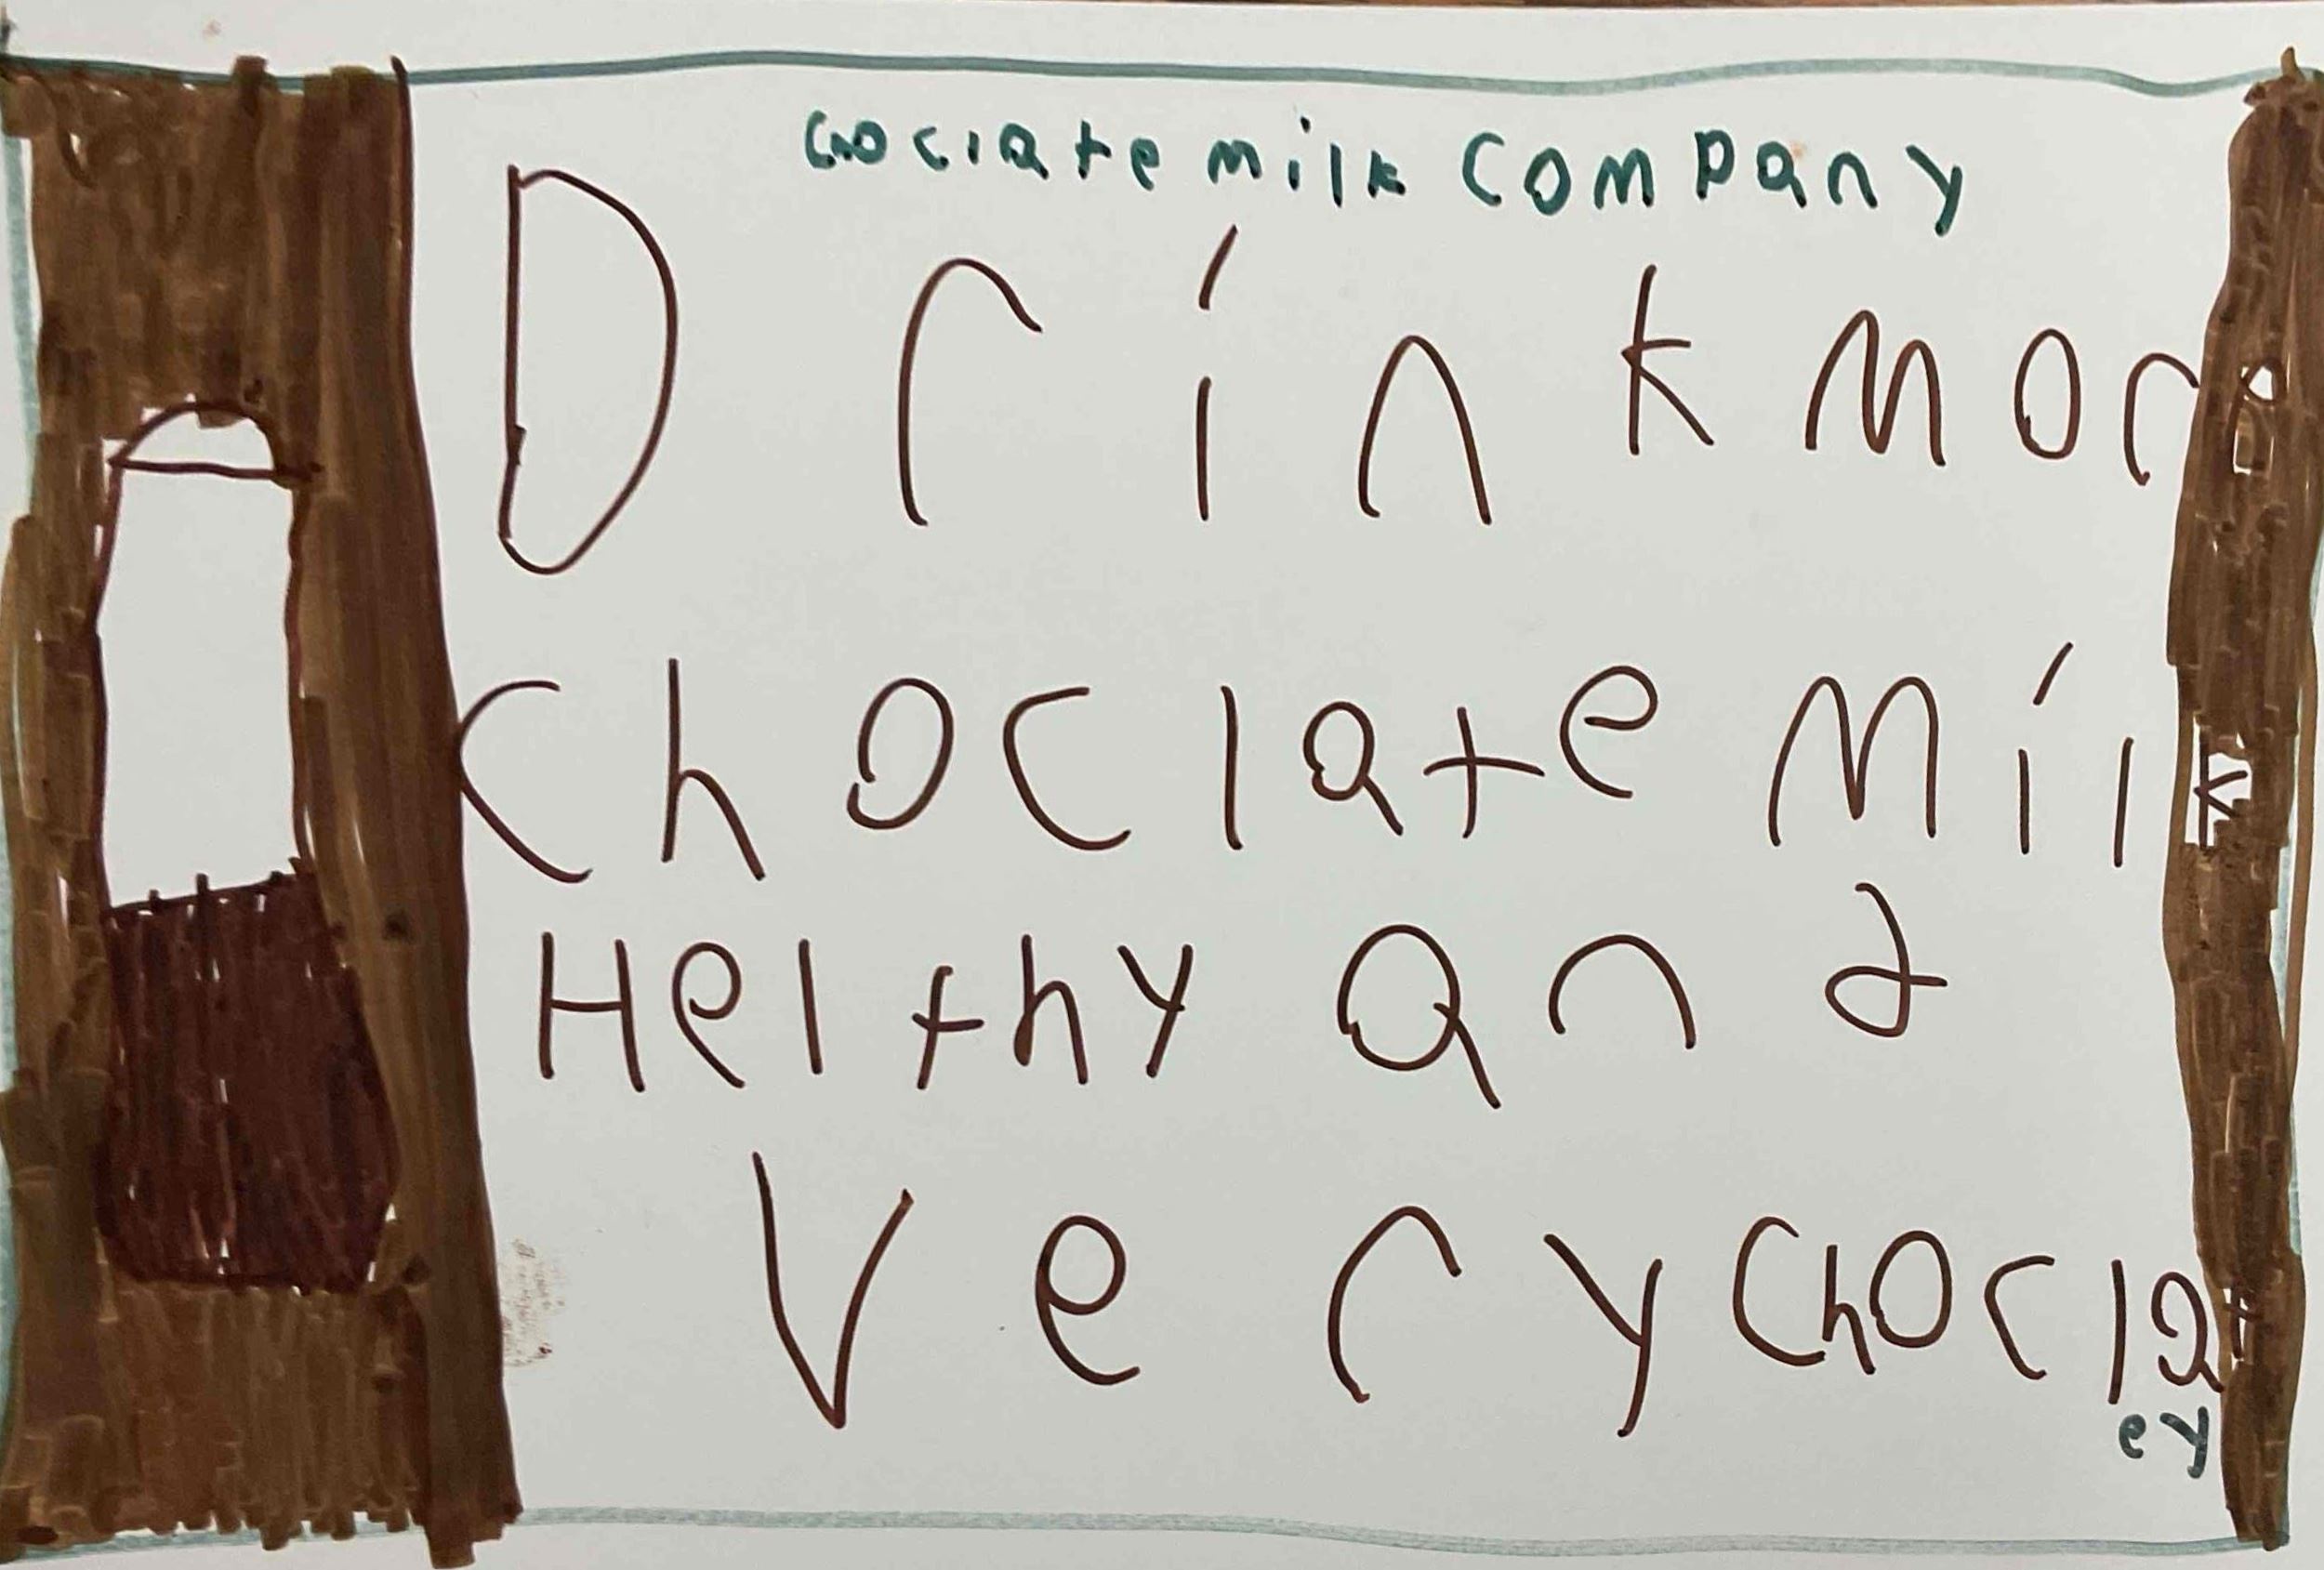 Choclate milk company
Drink more
Choclate milk
Helthy and
Very choclat
ey